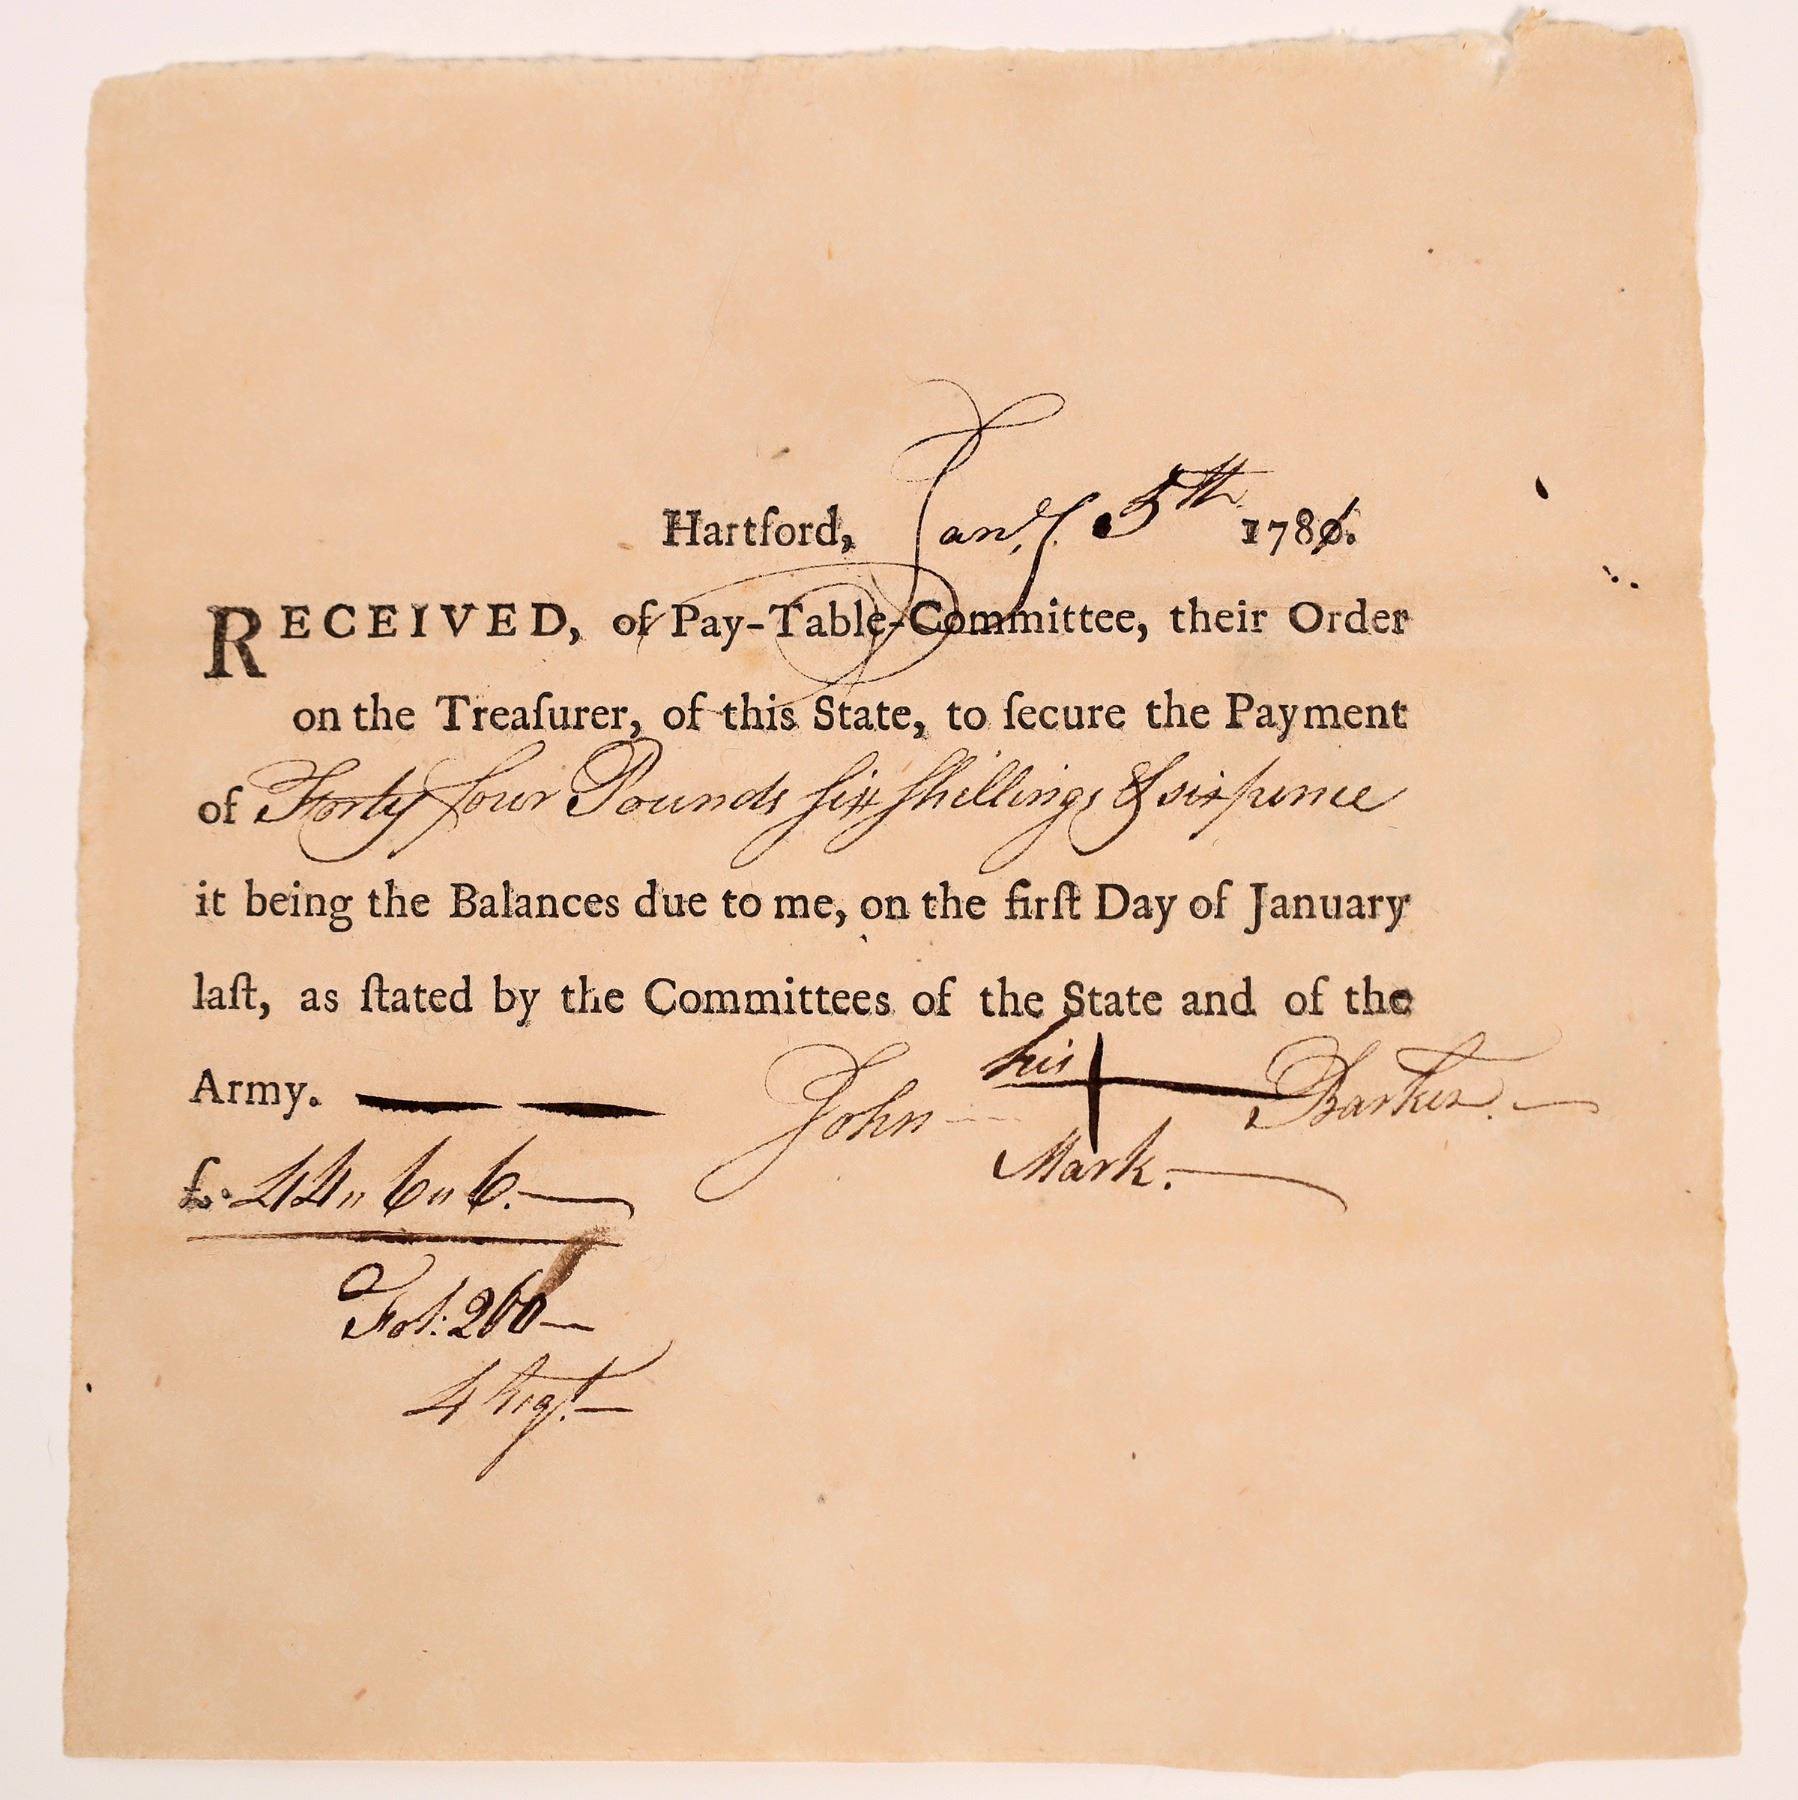 Hartford, Jan.y 5th 1780.
RECEIVED, of Pay-Table-Committee, their Order
on the Treaſurer, of this State, to ſecure the Payment
of Forty four Pounds ſix ſhillings & sixpence
it being the Balances due to me, on the firſt Day of January
laſt, as ſtated by the Committees of the State and of the
Army. his
John + Barker.
Mark.
£. 44 " 6 " 6.
Fol: 260
4 Regt.